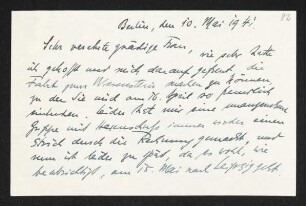 Berlin, den 10. Mai 194
82
Sehr verehrte gnädige Frau, wie sehr hatte
ich gehofft und mich darauf gefreut, die
Fahrt zum machen zu können,
zu der Sie mich am 16. April so freundlich
einluden. Leider hat mir eine unangenehme
Grippe mit immer wieder einen
Strich durch die Rechnung gemacht, und
nun ist leider zu spät, da es wohl, wie
beabsichtigt, am 15. Mai nach Leipzig geht.